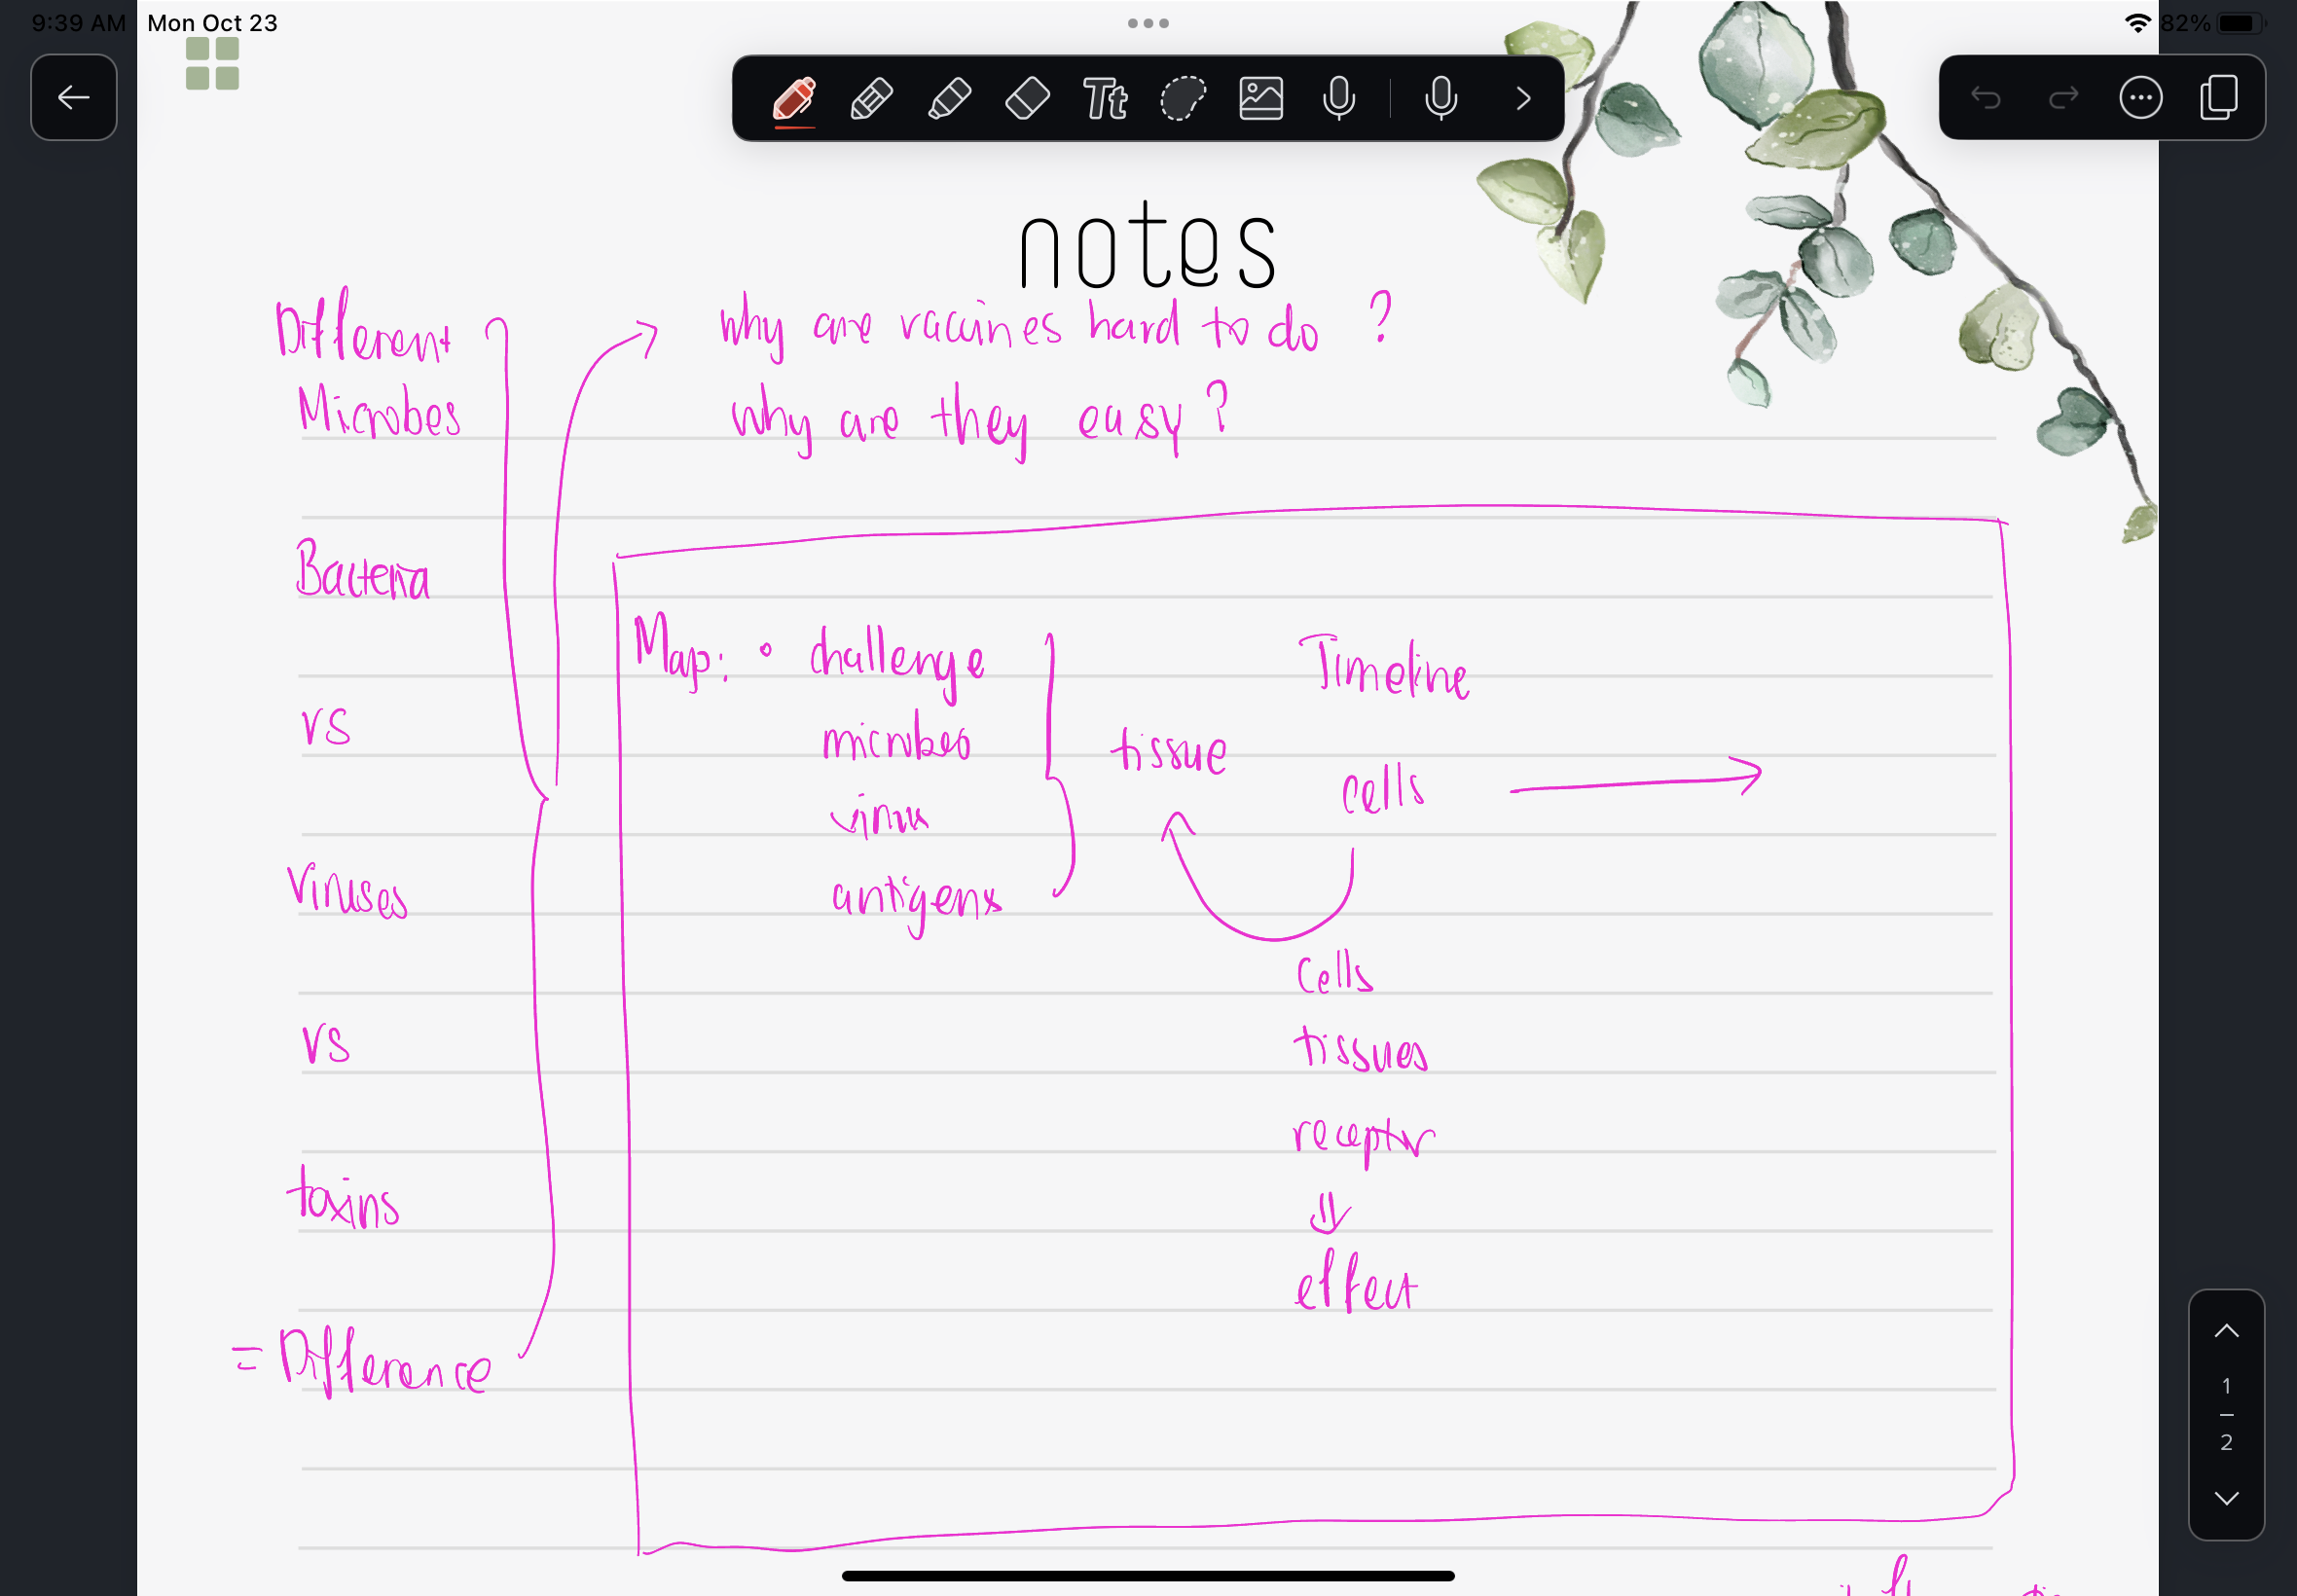 9:39 AM Mon Oct 23
82%
Tt
notes
Different
Microbes
Bacteria
vs
Viruses
vs
toxins
= Difference
Why are vaccines hard to do ?
why are they easy ?
Map: • challenge
microbes
virus
antigens
tissue
Timeline
cells
Cells
tissues
receptor
effect
1
2